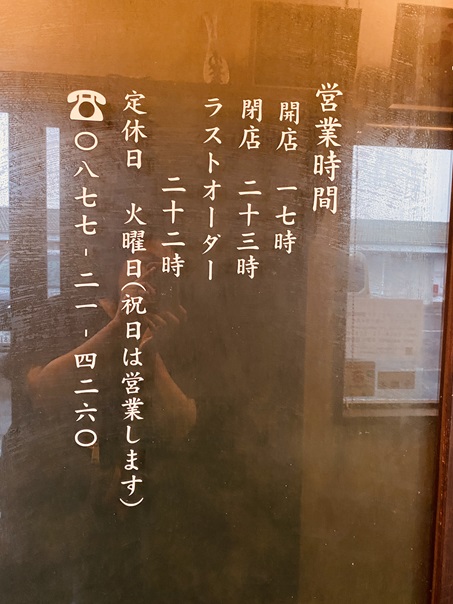 営業時間
開店 一七時
閉店 二十三時
ラストオーダー
二十二時
定休日 火曜日(祝日は営業します)
☎〇八七七-二一-四二六〇